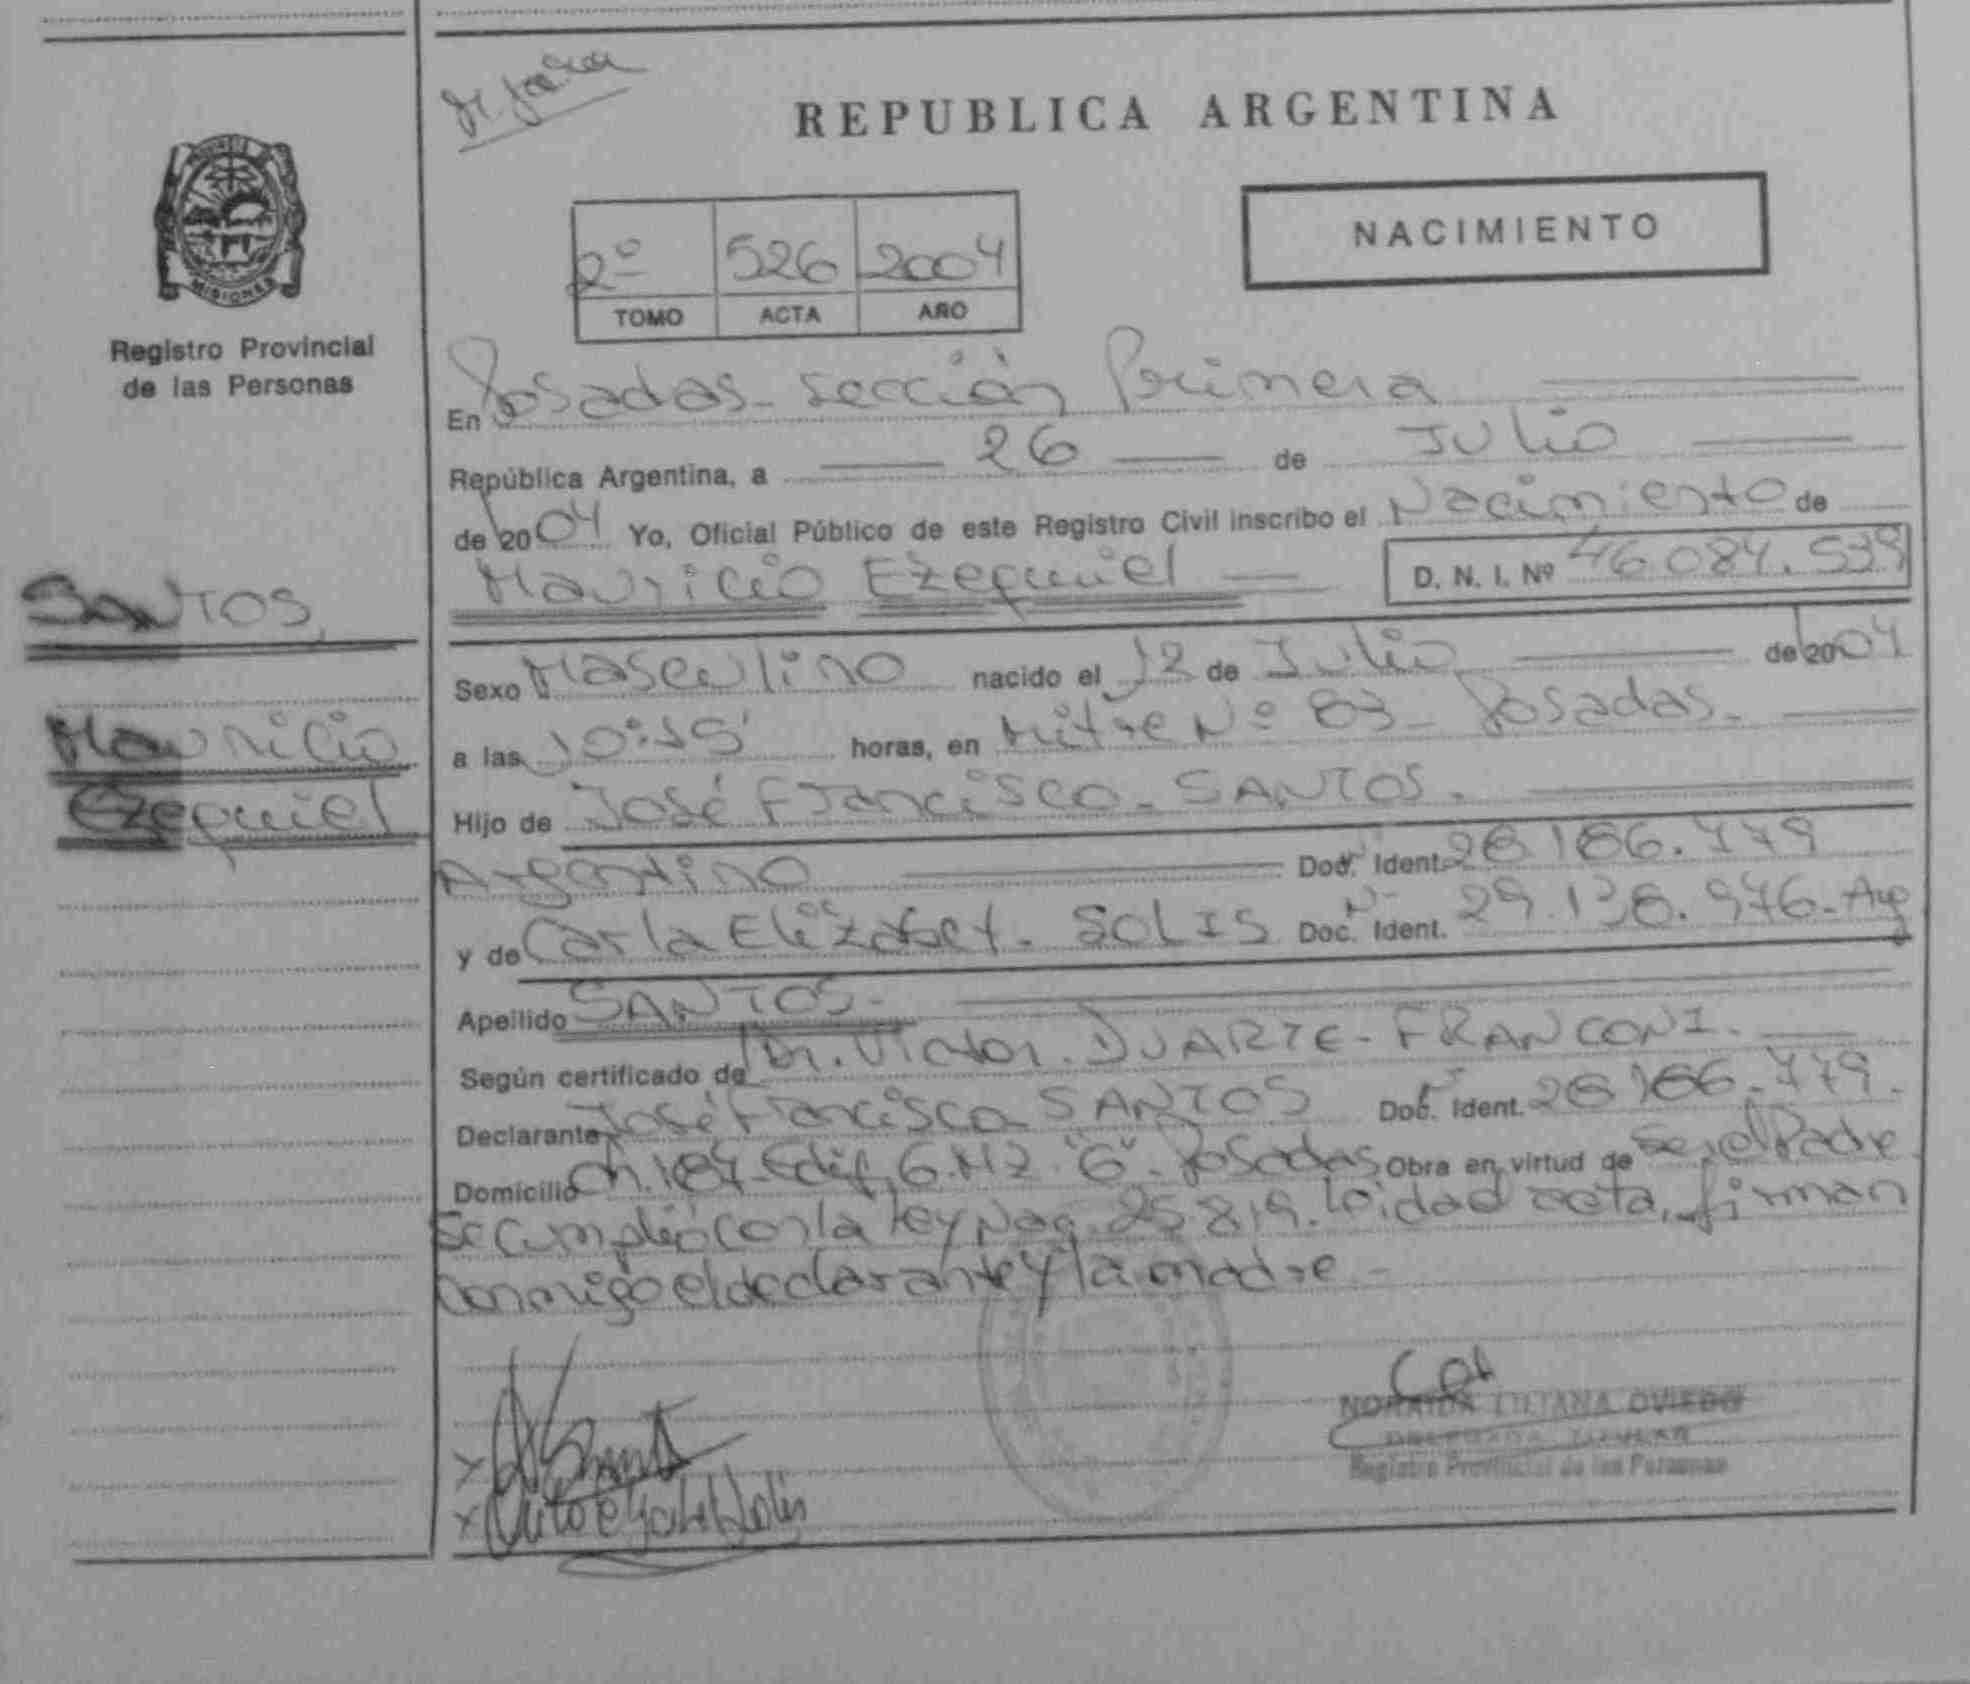 REPUBLICA ARGENTINA
NACIMIENTO
2º 526 2004
TOMO ACTA AÑO
MISIONES
Registro Provincial
de las Personas
En Posadas - sección Primera
República Argentina, a 26 de Julio
de 2004 Yo, Oficial Público de este Registro Civil inscribo el Nacimiento de
Mauricio Ezequiel D. N. I. Nº 46.084.539
SANTOS,
Mauricio
Ezequiel
Sexo Masculino nacido el 12 de Julio de 2004
a las 10:15' horas, en Mitre Nº 83 - Posadas.
Hijo de José Francisco - SANTOS.
Argentino Doc. Ident. 28.186.779
y de Carla Elizabet. SOLIS Doc. Ident. 29.138.976 - Arg
Apellido SANTOS.
Según certificado de Dr. Victor. DUARTE - FRANCONI.
Declarante José Francisco SANTOS Doc. Ident. 28.186.779.
Domicilio Ch. 187 - Edif. 6. MZ "G" - Posadas Obra en virtud de ser el Padre
Se cumplió con la ley Nac. 25.819. Leida el acta, firman
conmigo el declarante y la madre -
NORAIDA LILIANA OVIEDO
DELEGADA TITULAR
Registro Provincial de las Personas